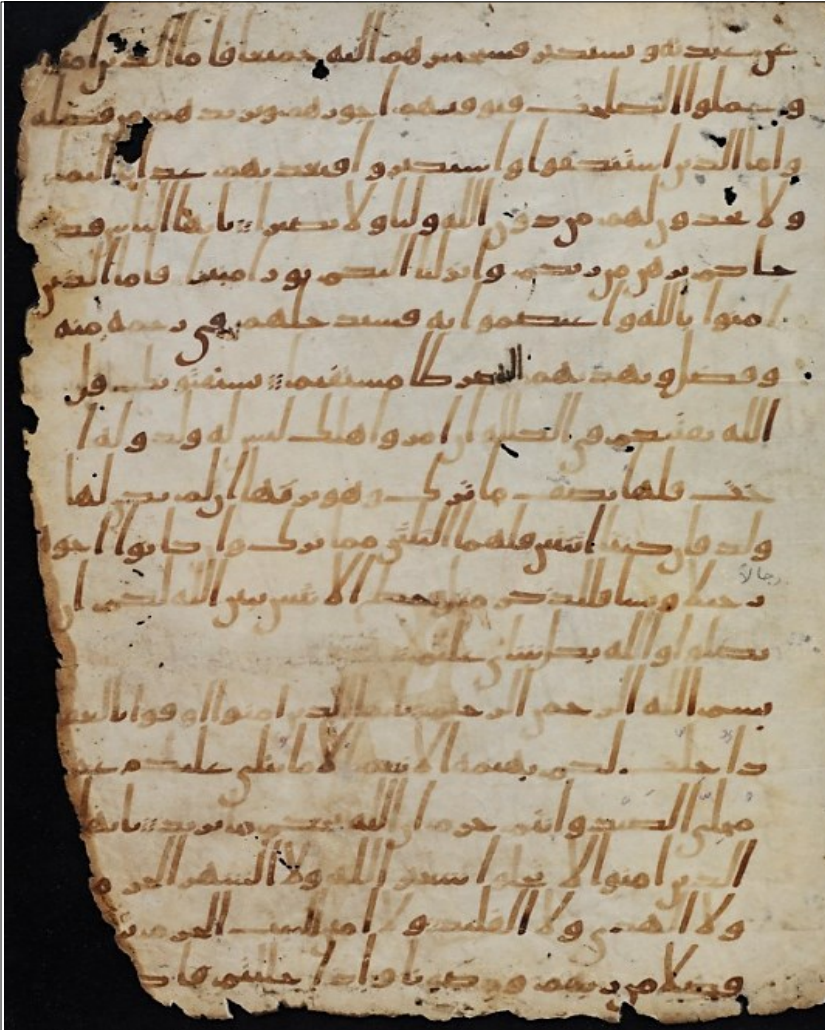 عن عبدته و يستكبر فسيحشرهم اليه جميعا فاما الذين امنو
و عملوا الصلحت فيوفيهم اجورهم ويزيدهم من فضله
واما الذين استنكفوا واستكبروا فيعذبهم عذابا اليما
ولا يجدون لهم من دون الله وليا ولا نصيرا يايها الناس قد
جاكم برهن من ربكم وانزلنا اليكم نورا مبينا فاما الذين
امنوا بالله واعتصموا به فسيدخلهم في رحمة منه
وفضل ويهديهم اليه صرطا مستقيما يستفتونك قل
الله يفتيكم في الكللة ان امروا هلك ليس له ولد وله ا
خت فلها نصف ما ترك وهو يرثها ان لم يكن لها
ولد فان كانتا اثنتين فلهما الثلثن مما ترك وان كانوا اخوة
رجالا
رجلا ونسا فللذكر مثل حظ الانثيين يبين الله لكم ان
تضلوا والله بكل شاي عليم
بسم الله الرحمن الرحيم يايها الذين امنوا اوفوا بالعقو
د احلت لكم بهيمة الانعم الا ما يتلى عليكم غير
محلي الصيد وانتم حرم ان الله يحكم ما يريد يايها
الذين امنوا لا تحلوا شعير الله ولا الشهر الحرم
ولا الهدي ولا القليد ولا امين البيت الحرم
فضلا من ربهم ورضونا واذا حللتم